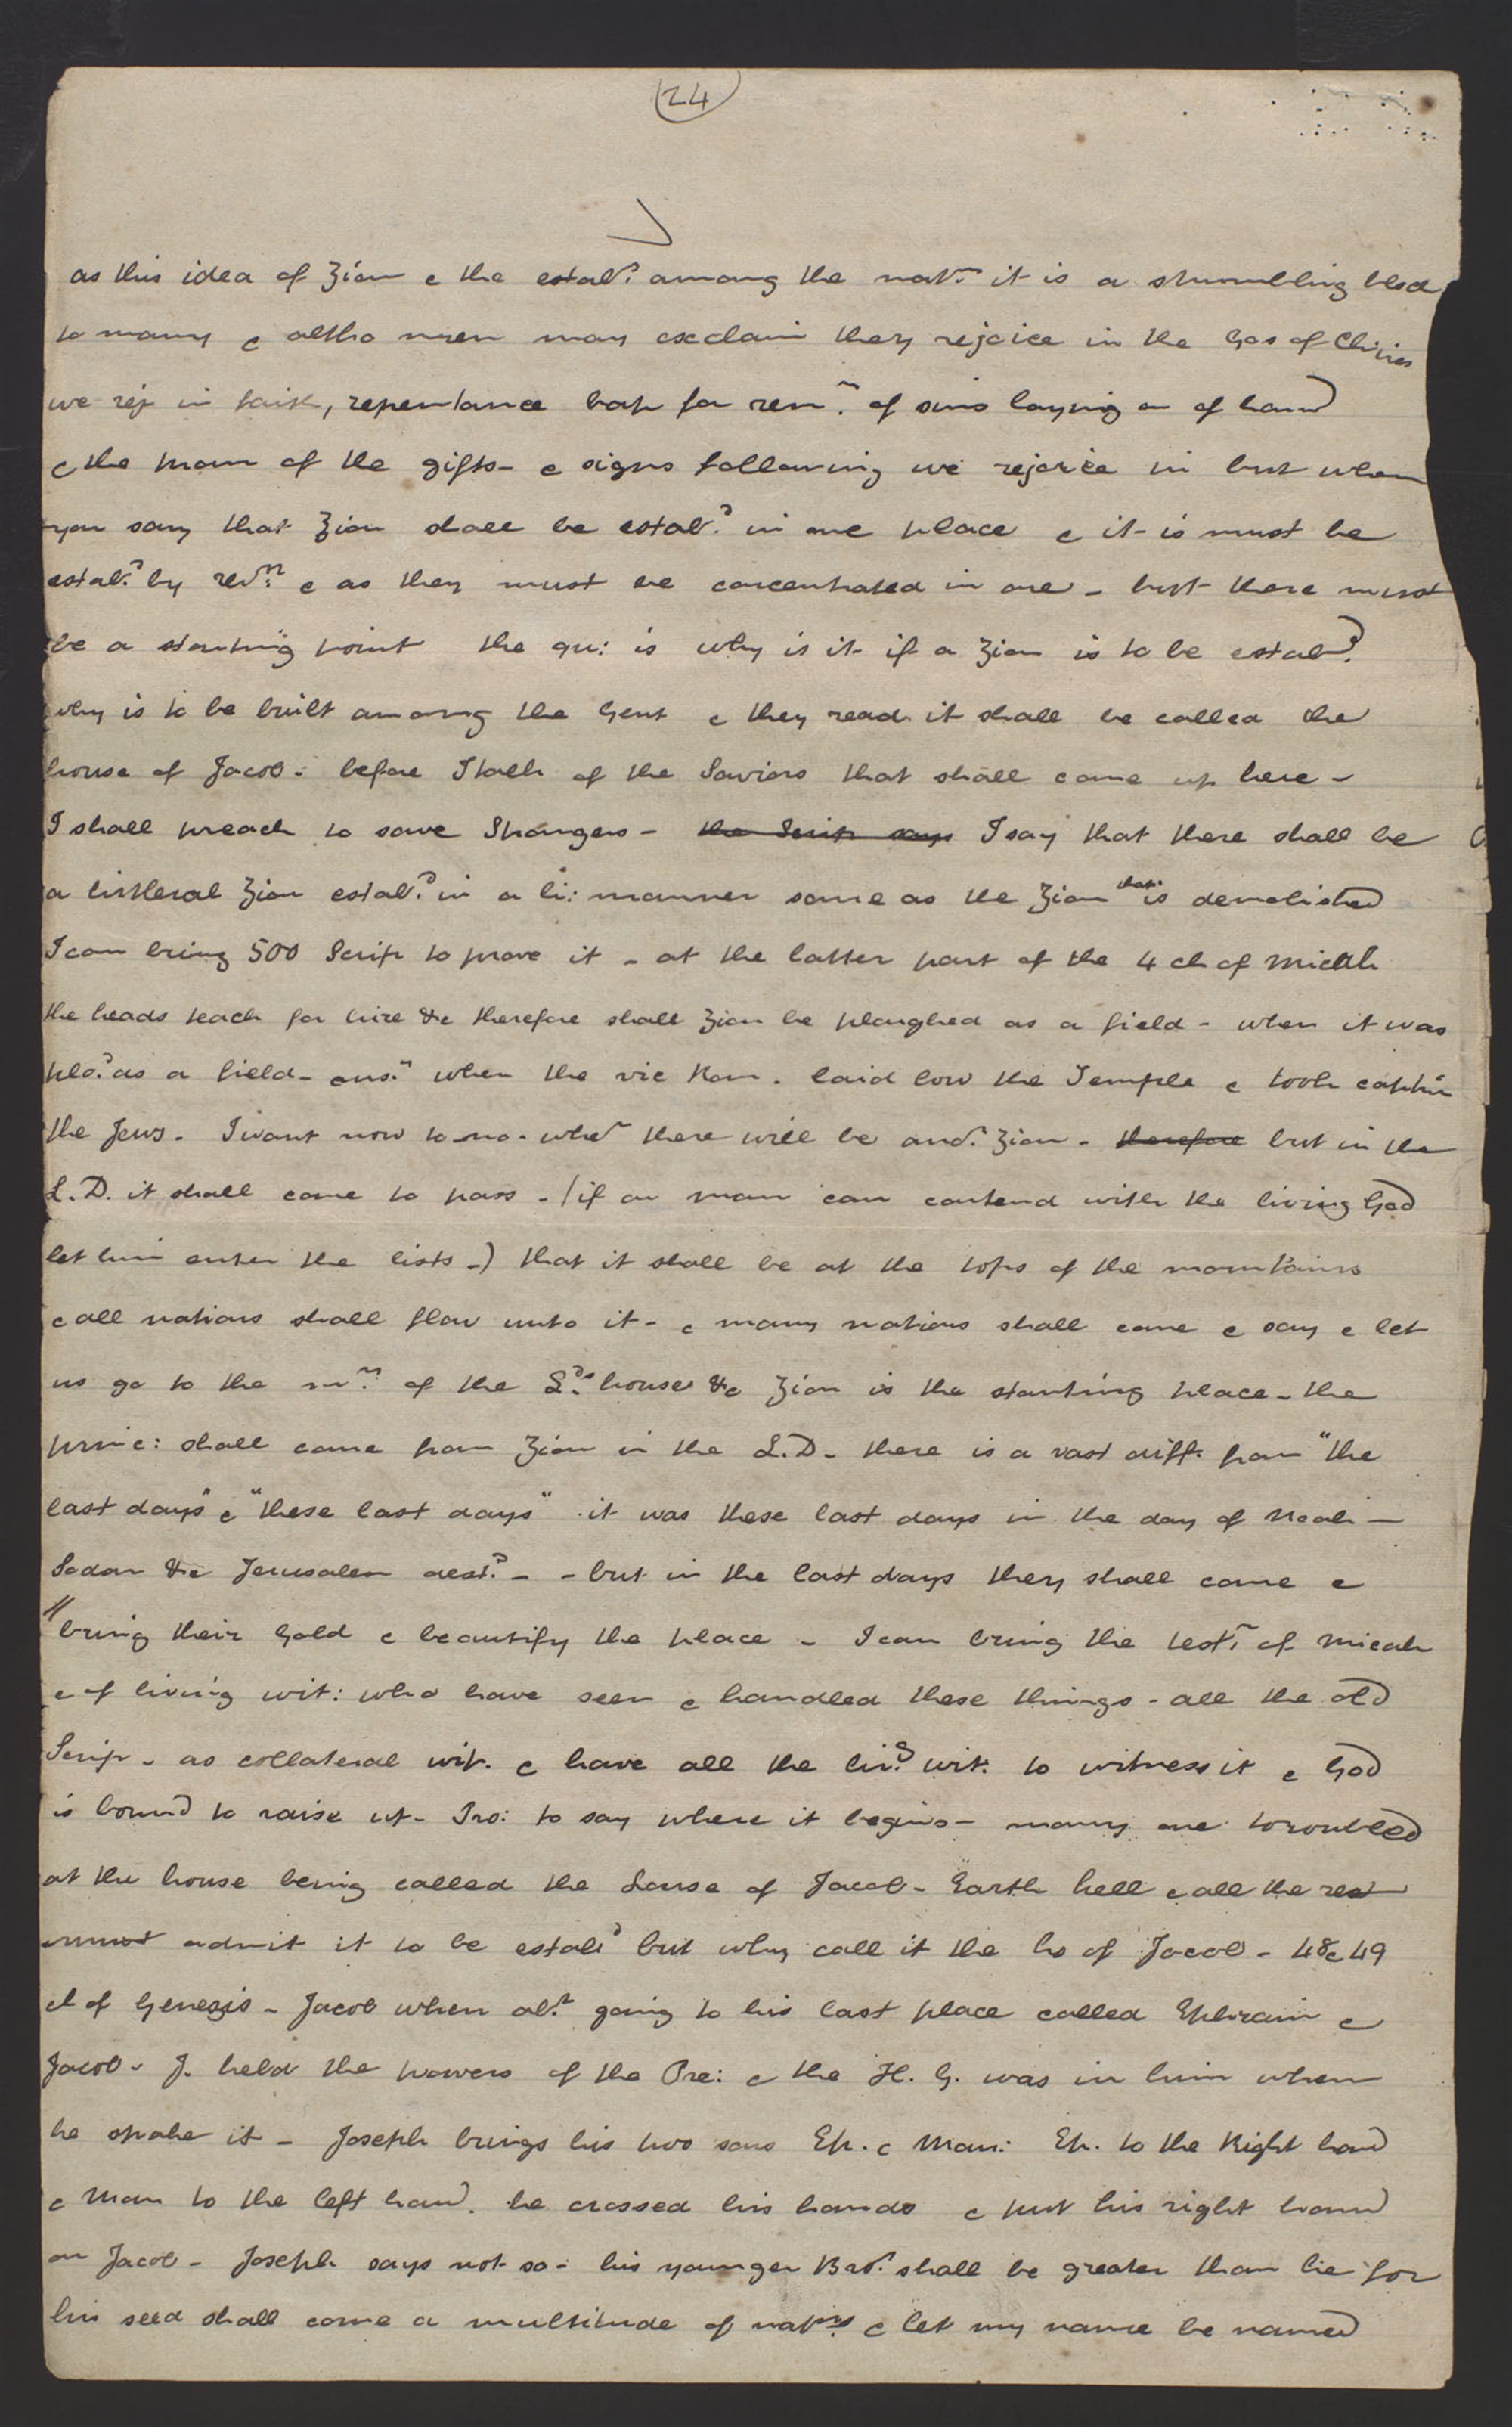 (24)
as this idea of Zion & the estabd. among the natns. it is a stumbling bloc
to many & altho men may exclaim they rejoice in the Gos of Christ
we rej in faith, repentance bap for remn. of sins laying on of hand
& the man of the gifts - & signs following we rejoice in but when
you say that Zion shall be estabd. in one place & it is must be
estabd. by revn. & as they must be concentrated in one - but there must
be a starting point the qu: is why is it if a Zion is to be estabd.
why is to be built among the Gent & they read it shall be called the
house of Jacob. before I talk of the Saviors that shall come up here -
I shall preach to save Strangers - the Scrip says I say that there shall be
a litteral Zion estabd. in a li: manner same as the Zion that is demolished
I can bring 500 Scrip to prove it - at the latter part of the 4 ch of Micah
the heads teach for hire &c therefore shall Zion be ploughed as a field - when it was
plod. as a field - ansr. when the vic Rom. laid low the Temple & took captiv
the Jews. I want now to no. wher there will be anor. Zion - therefore but in the
L.D. it shall come to pass - (if an man can contend with the living God
let him enter the lists -) that it shall be at the tops of the mountains
& all nations shall flow unto it - & many nations shall come & say & let
us go to the mn. of the Lds. house &c Zion is the starting place - the
princ: shall come from Zion in the L.D. there is a vast diff. from "the
last days" & "these last days" it was these last days in the day of Noah -
Sodom &c Jerusalem destd. - - but in the last days they shall come &
"bring their Gold & beautify the place - I can bring the testy. of Micah
& of living wit: who have seen & handled these things - all the old
Scrip - as collateral wit. & have all the livg. wit. to witness it & God
is bound to raise up - Pro: to say where it begins - many are toroubled
at the house being called the house of Jacob - Earth hell & all the rest
must admit it to be estabd but why call it the ho of Jacob - 48 & 49
ch of Genezis - Jacob when abt. going to his last place called Ephraim &
Jacob - J. held the powers of the Pre: & the H. G. was in him when
he spake it - Joseph brings his two sons Eph. & Man: Eph. to the Right hand
& Man to the left hand. he crossed his hands & put his right hand
on Jacob - Joseph says not so - his younger Bror. shall be greater than he for
his seed shall come a multitude of natns. & let my name be named